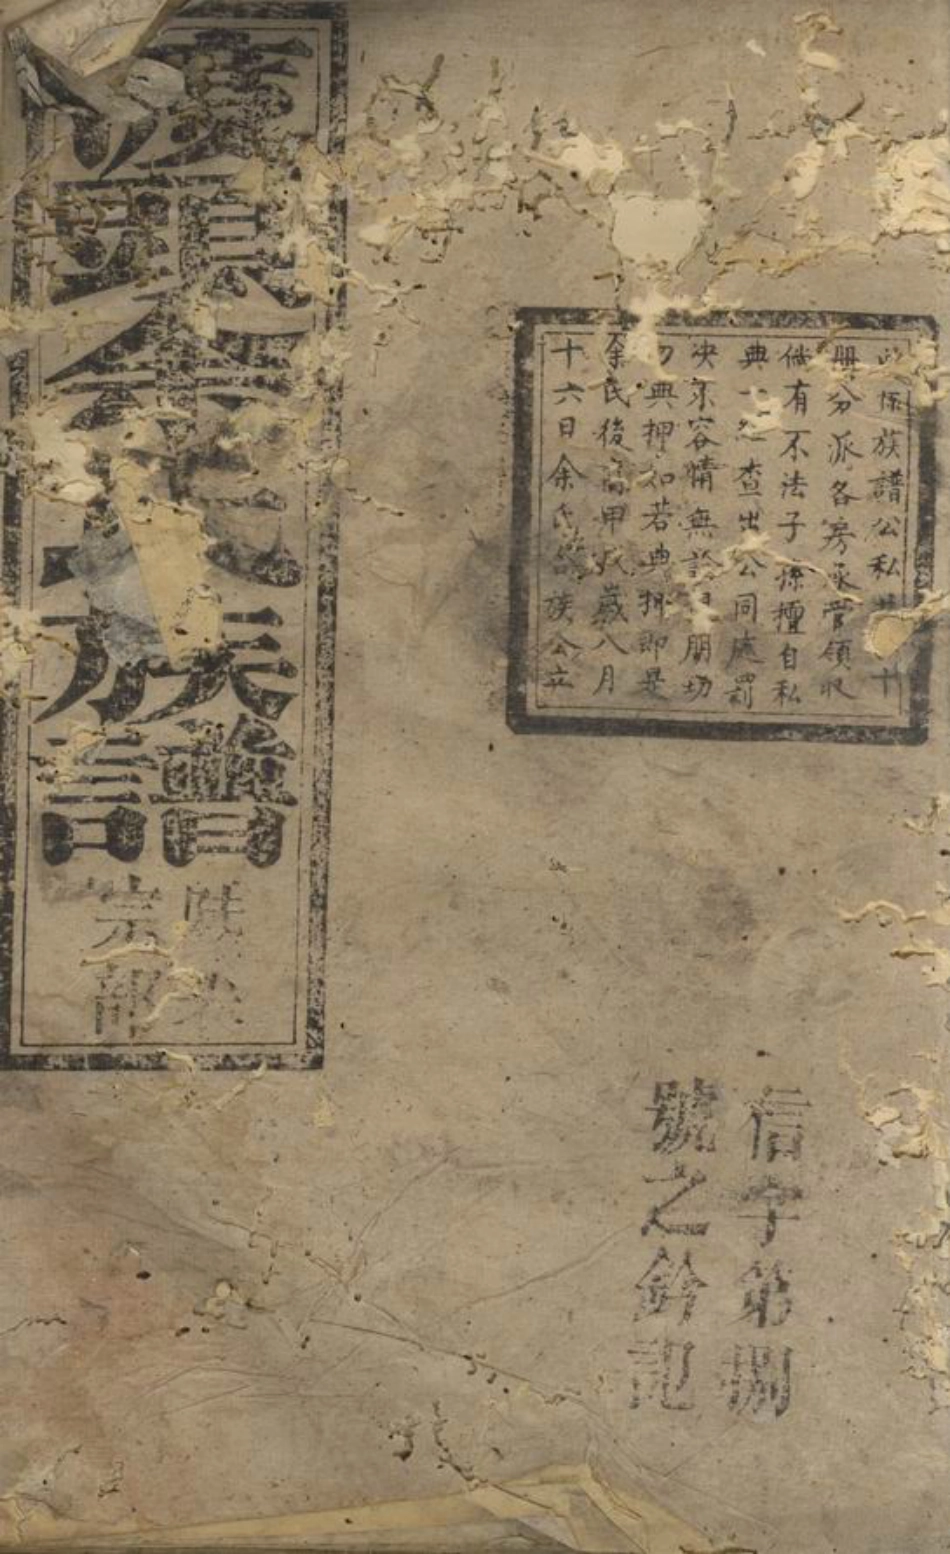 係族譜公私共 十
册分派各房承管領收
倘有不法子孫擅自私
典一經查出公同處罰
決不容情無論 朋切
勿典押如若典押即是
余民後裔甲 歲八月
十六日余氏 族公立
信字第捌
號之鈐記
頭余氏族譜
宗